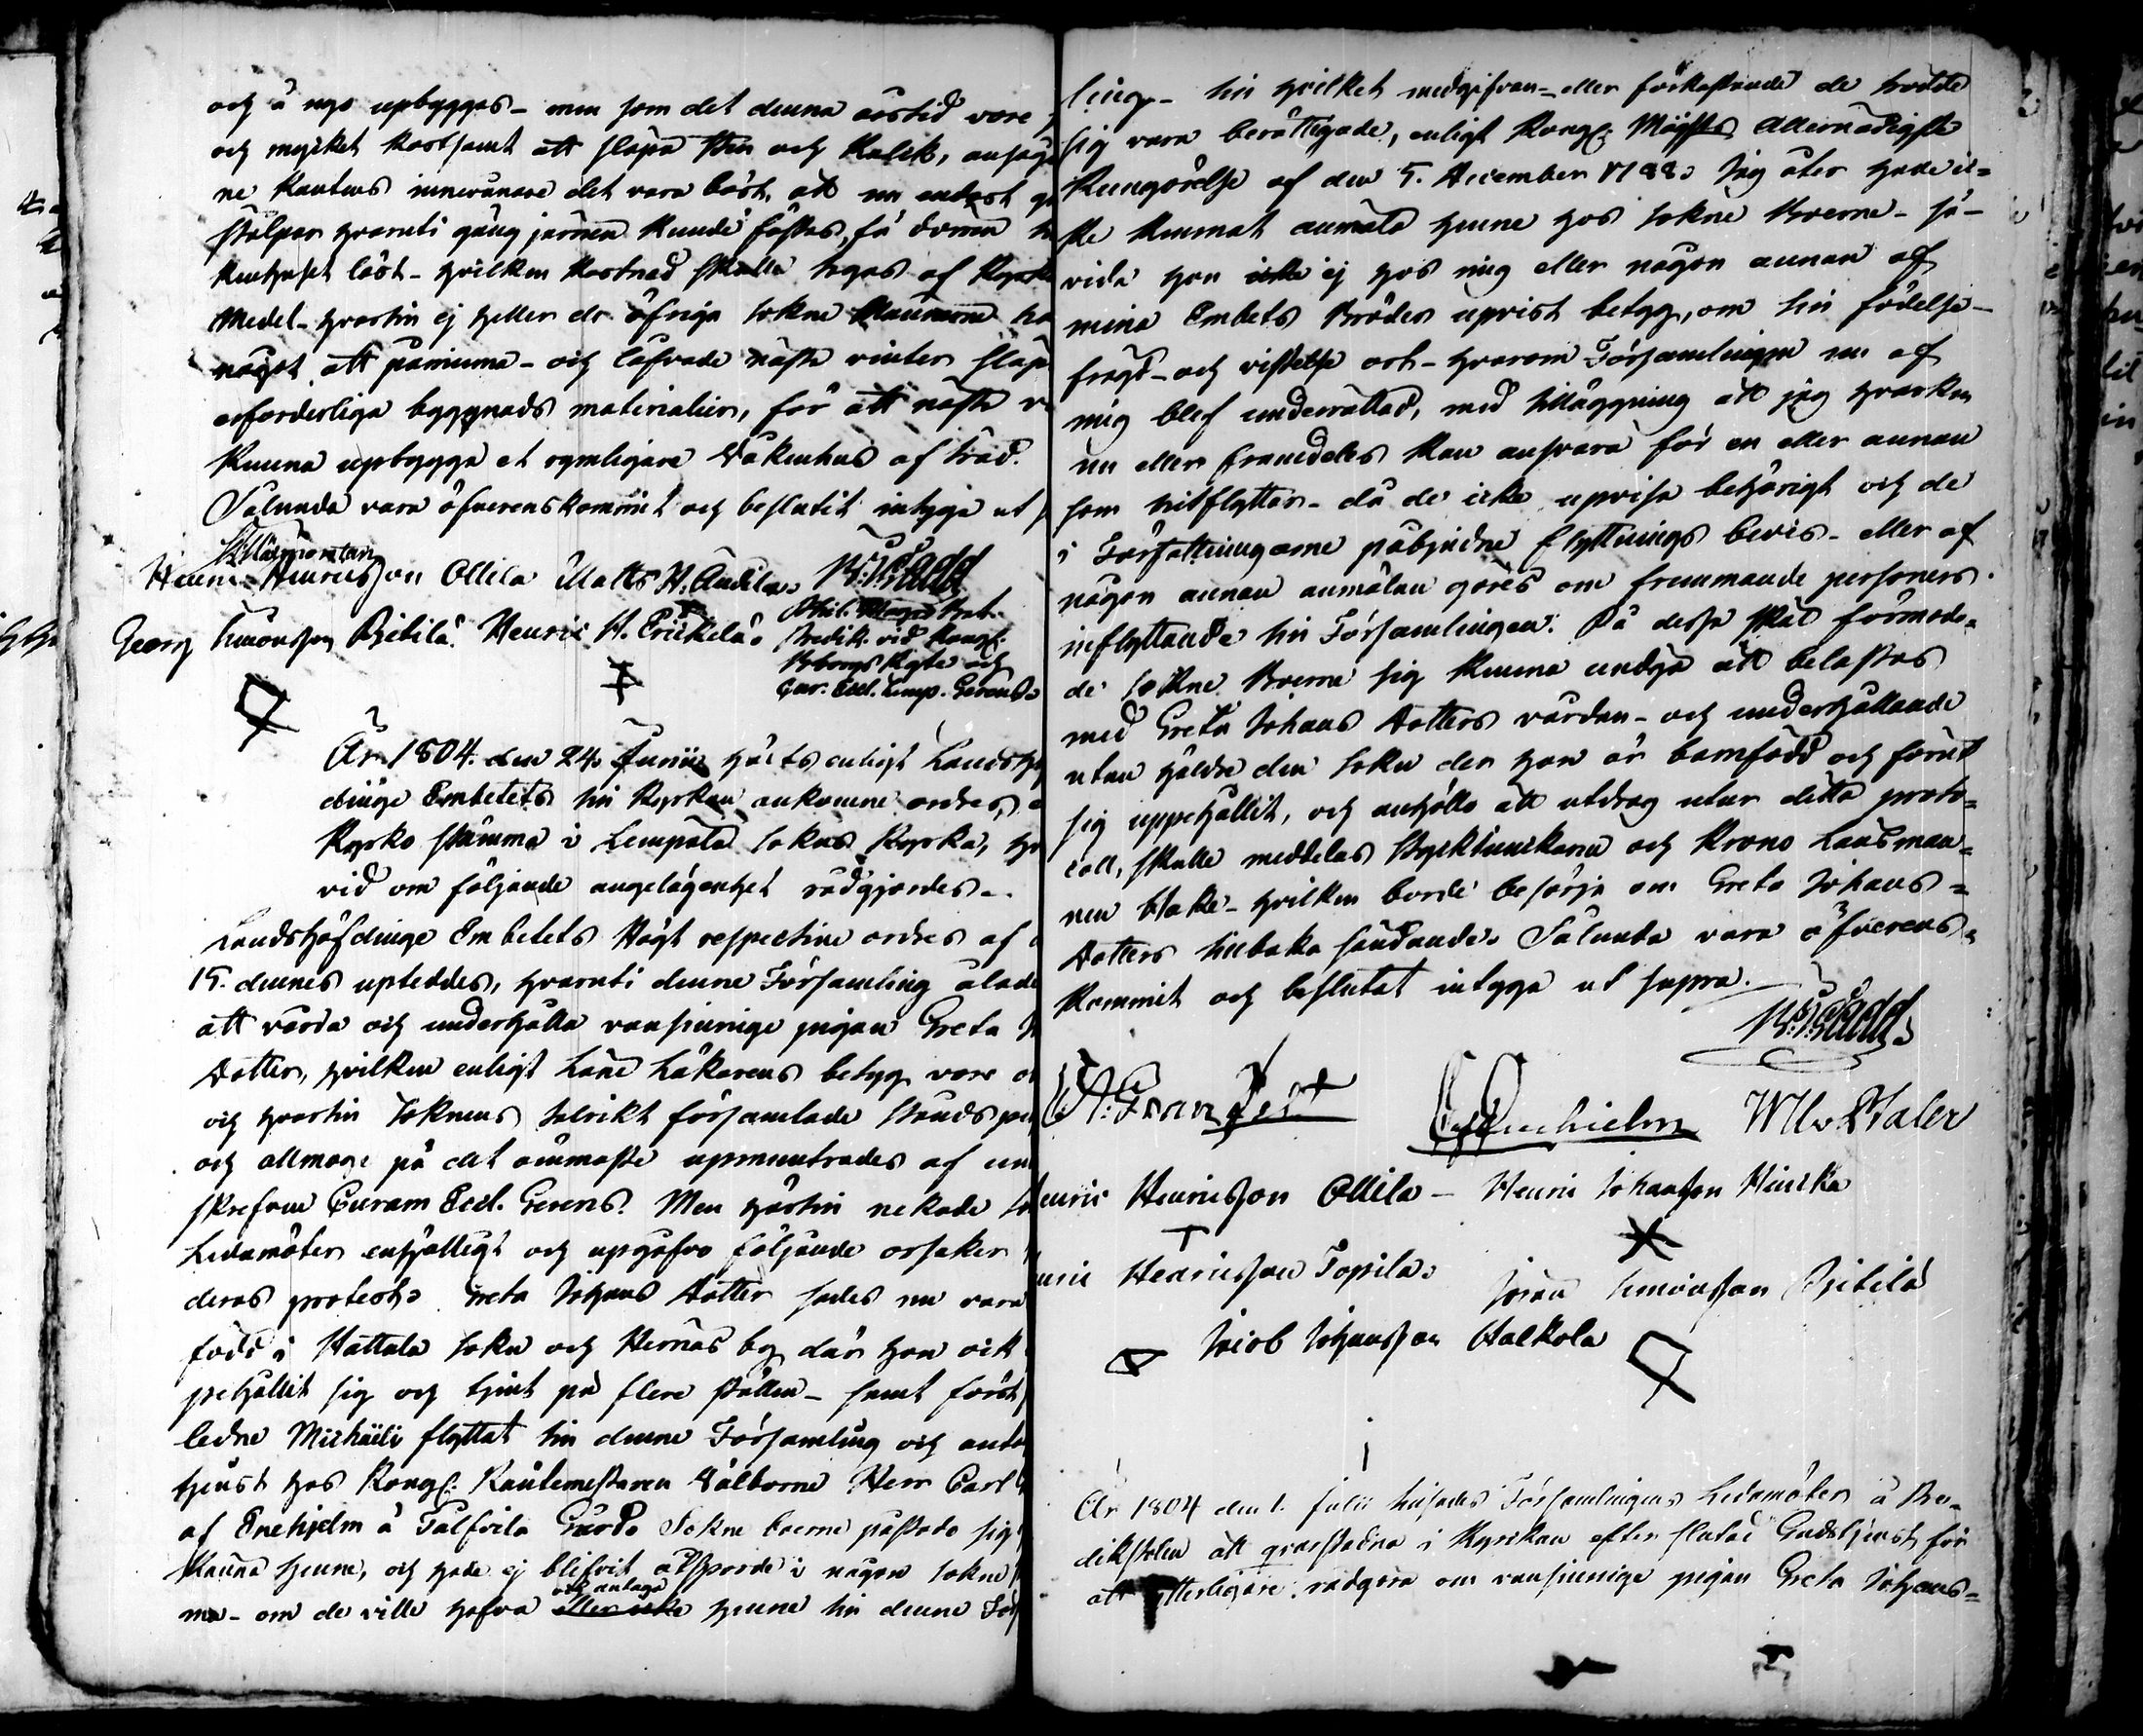 och å nyo upbygges - men som det denna årstid vore
och mycket kostsamt att släpa sten och kalck, ansågo
ne Kantens innevånare det vara bäst, att nu endast
stålpar hvaruti gång järnen kunde fästas, få dörren
kenhuset låst - hvilken kostnad skulle tagas af Kyrko
Medel - hvartill ej heller de öfriga sokne männerne ha
något att påminna - och lofvade nästa vinter släpa
erforderliga byggnads materialier, för att nästa v
kunna upbygga et rymligare Våkenhus af träd.
Sålunda vara öfverenskommit och beslutit intyga ut
Henric Henricsson Ollila Matts H. Anttila
Georg Simonsson Pietilä. Henric H. Erickilä.
Phil. Mag.
Predik. vid Kongl.
Cur. Eccl. Lemp. Gerens.
År 1804. den 24. Junii hölts enligt Landshöf
dinge Embetets til Kyrkan ankomne ordres,
Kyrko stämma i Lempäla sokns Kyrka, hvar
vid om följande angelägenhet rådgjordes -
Landshöfdinge Embetets Högt respective ordres af
15. dennes upteddes, hvaruti denne Församling ålade
att vårda och underhålla vansinnige pigan Greta
Dotter, hvilken enligt Läne Läkarens betyg vore
och hvartill Soknens talrikt församlade stånds per
och allmoge på det ömmaste upmuntrades af un
skrefvne Curam Eccl. Gerens. Men härtill nekade
Ledamöter enhälligt och upgåfvo följande orsaker
deras protest. Greta Johans Dotter sades nu vara
född i Hattula sokn och Hernäs by där hon ock
pehållit sig och tjent på flere ställen - samt först
ledne Michaëli flyttat til denne Församling och anta
tjenst hos Kongl. Räntemestaren Välborne Herr Carl
af Enehjelm å Tulfvila Gård. Sokne boerne påstodo sig
känna henne, och hade ej blifvit åtsporde i någon sokne
ma - om de ville hafva eller icke och antaga henne til denne För
ling - til hvilket medgifvan - eller förkastande de trodde
sig vara berättigade, enligt Kongl. Maj:ts Allernådigste
Kungörelse af den 5. December 1788. Jag åter hade ic=
ke kunnat anmäla henne hos sokne Boerne - så-
vida hon icke ej hos mig eller någon annan af
mina Embets Bröder uprist betyg, om sin födelse -
frägd - och vistelse ort - hvarom Församlingen nu af
mig blef underrättad, med tilläggning att jag hvarken
nu eller framdeles kan ansvara för en eller annan
som hitflyttar - då de icke uprisa behörigt och de
i Författningarne påbjudne flyttnings bevis - eller af
någon annan anmälan göres om främmande personers
inflyttande til Församlingen. På dessa skäl förmode=
de Sokne Boerne sig kunna undgå att belastas
med Greta Johans Dotters vårdan - och underhållande
utan hälre den sokn der hon är barnfödd och förut
sig uppehållit, och anhöllo att utdrag utur detta proto=
coll, skulle meddelas Krono Länsman=
nen - hvilken borde besörja om Greta Johans=
Dotters tilbaka sändande. Sålunda vara öfverens=
kommit och beslutat intyga ut supra.
Henric Henricsson Ollila - Henric Johansson Hinckka
Henric Henricsson Topila. Jöran Simonsson Pietilä
Jacob Johansson Halkola
År 1804 den 1. Julii tilsades Församlingens Ledamöter å Pre-
dikstolen att qvarstadna i Kyrckan efter slutad Gudstjenst för
att ytterligare rådgöra om vansinnige pigan Greta Johans=